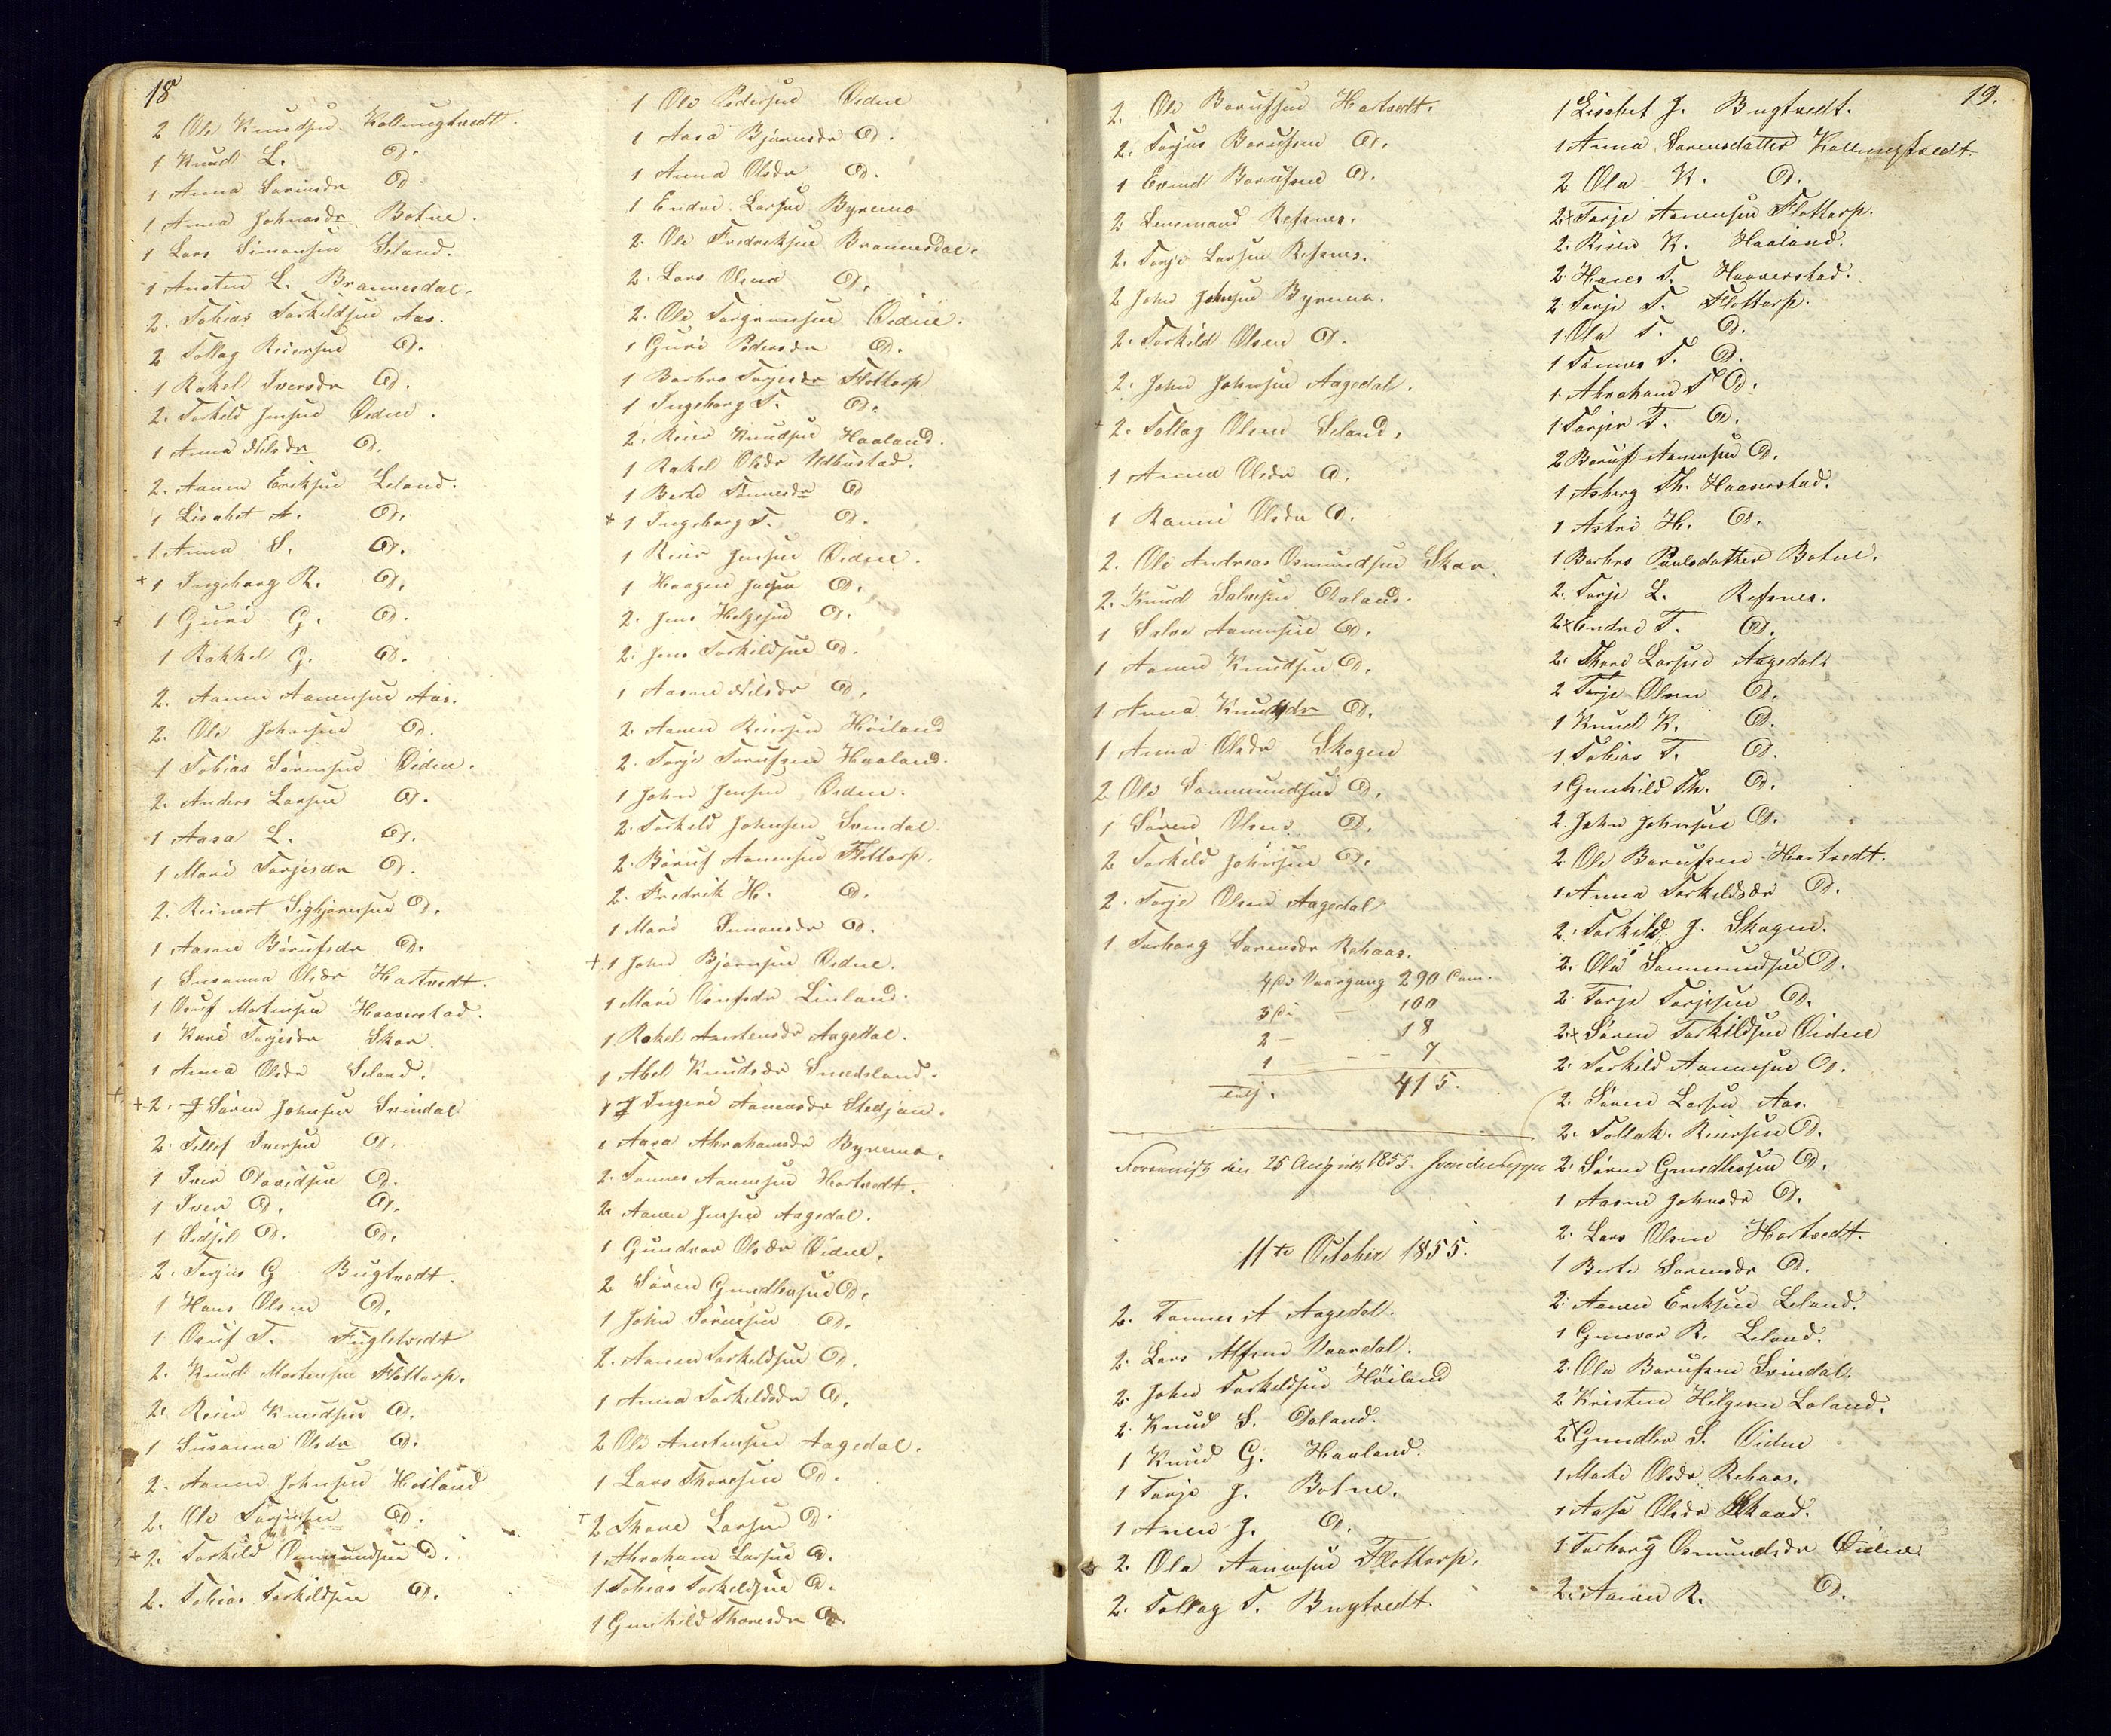 18
2 Ole Knudsen Kollungtvedt.
1 Knud L. D.
1 Anna Sørensdr D.
1 Anna Johnsdr Botne.
1 Lars Simonsen Seland.
1 Austen L. Brannesdal.
2. Tobias Torkildsen Aas.
2 Tollag Reiersen D.
1 Rakel Iversdr D.
2. Torkild Jensen Øidne.
1 Anna Nilsdr D.
2. Aanen Eriksen Leland.
1 Lisabet A. D.
1 Anna S. D.
+ 1 Ingeborg R. D.
+ 1 Guri G. D.
1 Rakkel G. D.
2. Aanen Aanensen Aas.
2. Ole Johnsen D.
1 Tobias Sørensen Øidne.
2. Anders Larsen D.
1 Aasa L. D.
1 Mari Torjesdr D.
2. Reinert Sigbjørnsen D.
1 Aasne Børufsdr D.
1 Susanna Olsdr Hartvedt.
1 Osuf Mortensen Haaverstad.
1 Kari Torjesdr Skar.
1 Anna Olsdr Seland.
+ 2. Søren Johnsen Svindal
2. Tellef Iversen D.
1 Iver Davidsen D.
1 Iver D. D.
1 Sidsel D. D.
2. Torjus G Bugtvedt.
1 Hans Olsen D.
1 Osuf T. Fuglstvedt
2. Knud Mortensen Flottorp.
2. Reier Knudsen D.
1 Susanna Olsdr D.
2. Aanen Johnsen Høiland
2. Ole Torjusen D.
+ 2. Torkild Osmundsen D.
2. Tobias Torkildsen D.
1 Ole Pedersen Øidne
1 Aasa Bjørnsdr D.
1 Anna Olsdr D.
1 Endre Larsen Byremo
2. Ole Fredriksen Brannesdal.
2. Lars Olsen D.
2. Ole Torgrimsen Øidne.
1 Guri Pedersdr D.
1 Barbro Torjesdr Flottorp
1 Ingeborg T. D.
2. Reier Knudsen Haaland.
1 Rakel Olsdr Udbustad.
1 Berte Tønnesdr D
+ 1 Ingeborg T. D.
1 Reier Jensen Øidne.
1 Haagen Jensen D.
2. Jens Helgesen D.
2. Jens Torkildsen D.
1 Aasne Nilsdr D.
2. Aanen Reiersen Høiland
2. Torje Torufsen Haaland.
1 John Jensen Øidne.
2. Torkild Johnsen Svindal.
2. Børuf Aanensen Flottorp.
2. Fredrik H. D.
1 Mari Simonsdr D.
+ 1 John Bjørnsen Øidne.
1 Mari Osufsdr Linland.
1 Rakel Austensdr Aagedal.
1 Abel Knudsdr Smedsland.
1 Ingeri Aanensdr Stedjan.
1 Aasa Abrahamsdr Byremo.
2. Tønnes Aanensen Hartvedt.
2 Aanen Jensen Aagedal.
1 Gundvor Olsdr Øidne.
2 Søren Gundlesen D.
1 John Sørensen D.
2. Aanen Torkildsen D.
1 Anna Torkildsdr D.
2 Ole Austensen Aagedal.
1 Lars Thoresen D.
+ 2 Thore Larsen D.
1 Abraham Larsen D.
1 Tobias Torkildsen D.
1 Gunhild Thoresdr D.
2. Ole Børufsen Hartvedt.
2. Torjus Børufsen D.
1 Evind Børufsen D.
2 Lensmand Refsnes.
2. Torje Larsen Refsnes.
2 John Johnsen Byremo.
2. Torkild Olsen D.
2. John Johnsen Aagedal.
+ 2. Tollag Olsen Seland.
1 Anna Olsdr D.
1 Ranni Olsdr D.
2. Ole Andreas Osmundsen Skar.
2. Knud Salvesen Daland.
1 Salve Aanensen D.
1 Aanen Knudsen D.
1 Anna Knudsdr D.
1 Anna Olsdr Skogen
2 Ole Sammundsen D.
1 Søren Olsen D.
2 Torkild Johnsen D.
2. Torje Olsen Aagedal
1 Torborg Sørensdr Rebaas.
4de Naargang 290 Com.
3die — 100
2 — 18
1 — — 7
tilsj. 415.
25 August 1855.
11te October 1855.
2. Tønnes A Aagedal.
2. Lars Alfsen Vaardal.
2. John Torkildsen Høiland
2. Knud S. Daland.
1 Knud G. Haaland.
1 Torje J. Botne.
1 Anen J. D.
2. Ole Aanensen Flottorp.
2. Tollag T. Bugtvedt.
19.
1 Lisabet J. Bugtvedt.
1 Anna Sørensdatter Kollungtvedt.
2 Ole K. D.
2+ Torje Aanensen Flottorp.
2. Reier K. Haaland.
2 Hans T. Haaverstad.
2 Torje T. Flottorp.
1 Ole T. D.
1 Tønnes T. D.
1 Abraham T D.
1 Torjer T. D.
2 Børuf Aanensen D.
1 Asberg Th. Haaverstad.
1 Astri H. D.
1 Barbro Paulsdatter Botne.
2. Torje L. Refsnes.
2+ Endre T. D.
2. Thore Larsen Aagedal.
2 Torje Olsen D.
1 Knud K. D.
1 Tobias T. D.
1 Gunhild Th. D.
2. John Johnsen D.
2 Ole Børufsen Hartvedt.
1 Anna Torkildsdr D.
2. Torkild J. Skogen.
2. Ole Sammundsen D.
2. Torje Torjesen D.
2+ Søren Torkildsen Øidne
2. Torkild Aanensen D.
2. Søren Larsen Aas.
2. Tollak Reiersen D.
2. Søren Gundlesen D.
1 Aasne Johnsdr D.
2. Lars Olsen Hartvedt.
1 Berte Sørensdr D.
2. Aanen Eriksen Leland.
1 Gunvor R. Leland.
2. Ole Børufsen Svindal.
2 Kristen Helgesen Loland.
2+ Gundlev S. Øidne
1 Marte Olsdr Rebaas.
1 Aasa Olsdr Skaad.
1 Torborg Osmundsdr Øidne.
2. Aanen R. D.